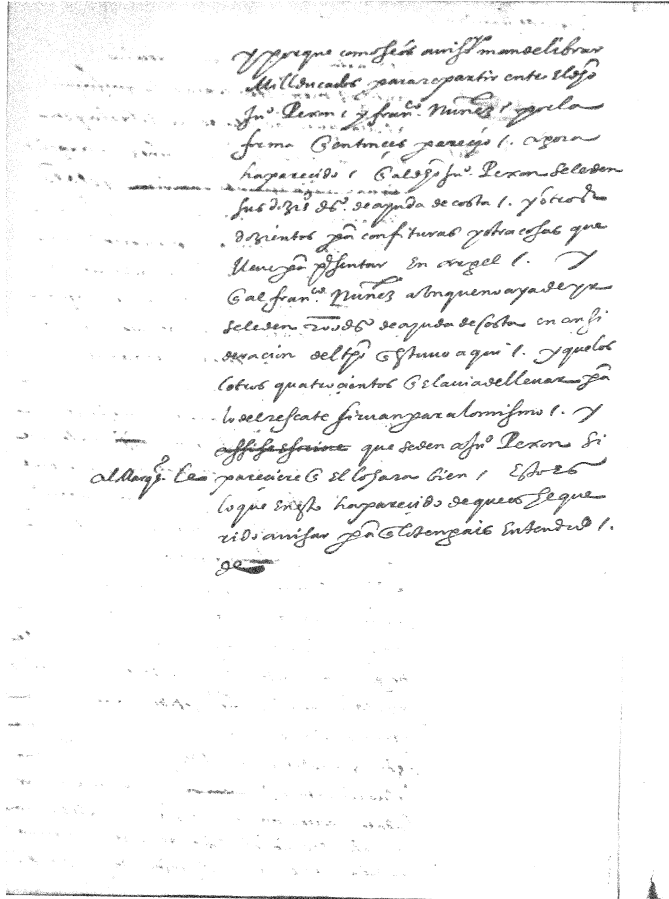 y porque como se os aviso mandé librar
Mill ducados para repartir entre el dho
Juº. Pexon / y franco. Nuñez / por la
forma q entonces pareçio /. agora
ha parecido / q al dho Juº. Pexon se le den
sus dozios ds. de ayuda de costa /. y otros
dozientos pa confituras y otras cosas que
lleve pa presentar en Argel /. y
q al franco. Nuñez aunque no aya de yr
se le den ds. de ayuda de costa en consi
deracion del tpo q estuvo aqui /. y que los
otros quatrocientos q el avia de llevar pa
lo del rescate sirvan para lo mismo /. y
que se den a Juº. Pexon si
al Marqs. pareciere q el lo hara bien / Esto es
lo que en esto ha parecido de que os he que
rido avisar pa q lo tengais entendido /.
de